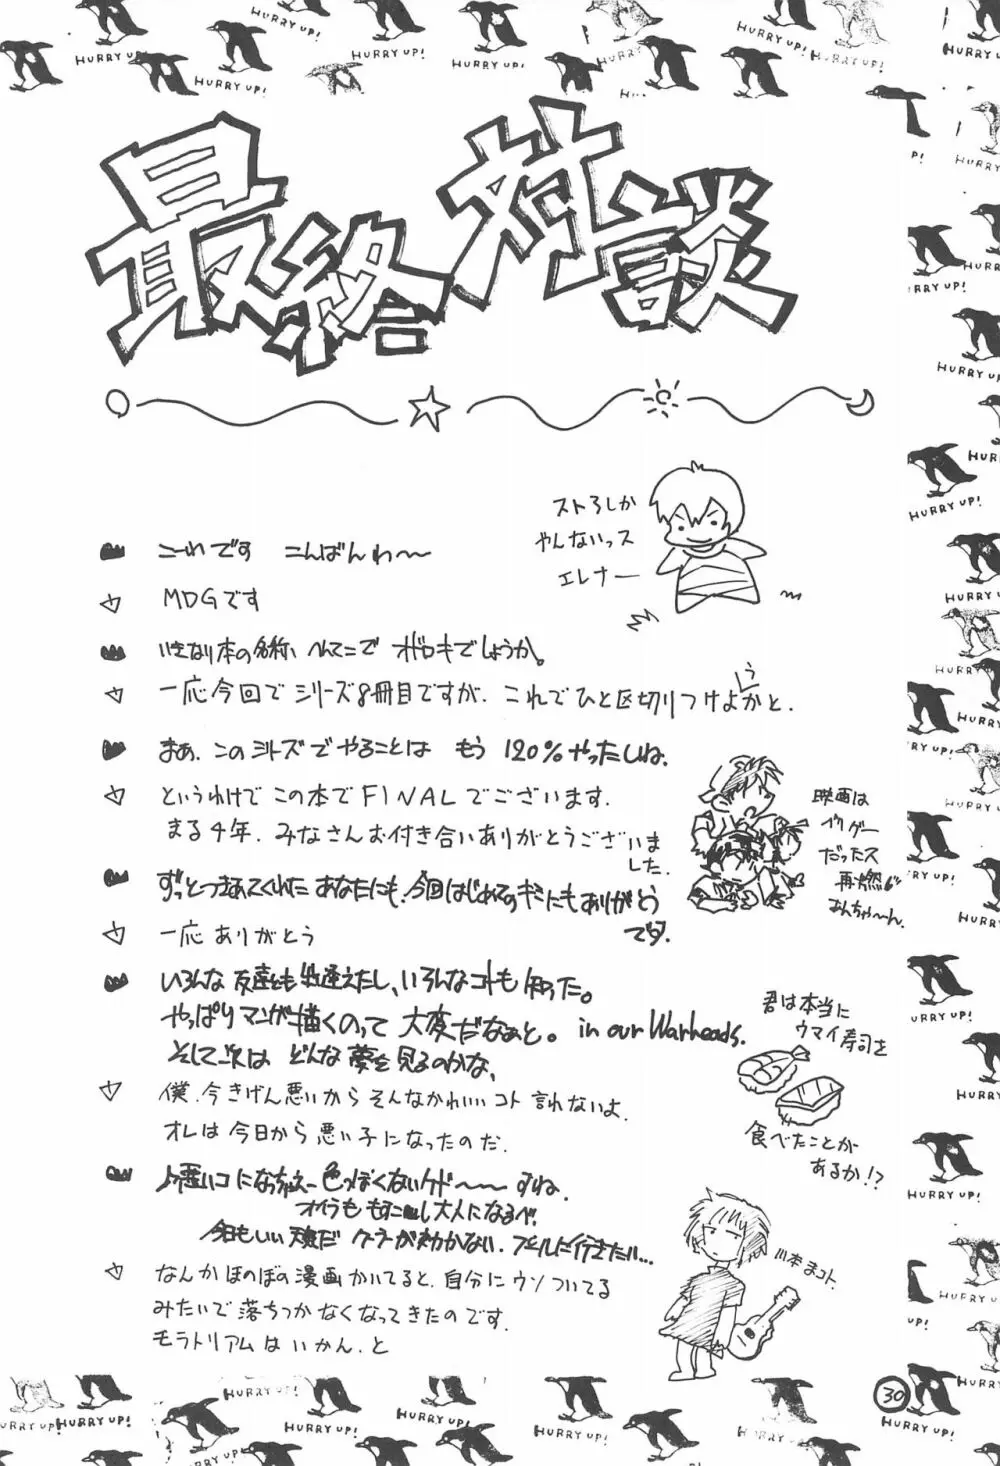 最終対談
ストろしか
やんないっス
エレナー
こーれです こんばんわ〜
MDGです
いきなり本の名称、へんてこで オドロキでしょうか。
一応今回で シリーズ8冊目ですが、これでひと区切りつけようかと.
まあ、このシリーズでやることは もう 120%やったしね.
というわけで この本で FINALでございます.
まる4年. みなさんお付き合いありがとうございました.
映画は
ベリゲー
だったス
再燃
あんちゃ〜ん.
ずっとつきあってくれた あなたにも、今回はじめてのキミにもありがとうです.
一応 ありがとう
いろんな 友達とも出逢えたし、いろんなコトも知った。
やっぱりマンガ描くのって 大変だなぁと。 in our Warheads.
そして次は どんな夢を見るのかな、
君は本当に
ウマイ寿司を
食べたことが
あるか!?
僕、今きげん悪いから そんなかわいいコト 言れないよ.
オレは今日から悪い子になったのだ.
悪いコになっちゃえー 色っぽくないケド〜〜 すね.
オイラも もすこし大人になるべ.
今日もいい天気だ クーラーが効かない. プールに行きたい...
なんかほのぼの漫画かいてると、自分にウソついてる
みたいで 落ちつかなくなってきたのです.
モラトリアムは いかん、と
川本まコト.
30
HURRY UP!